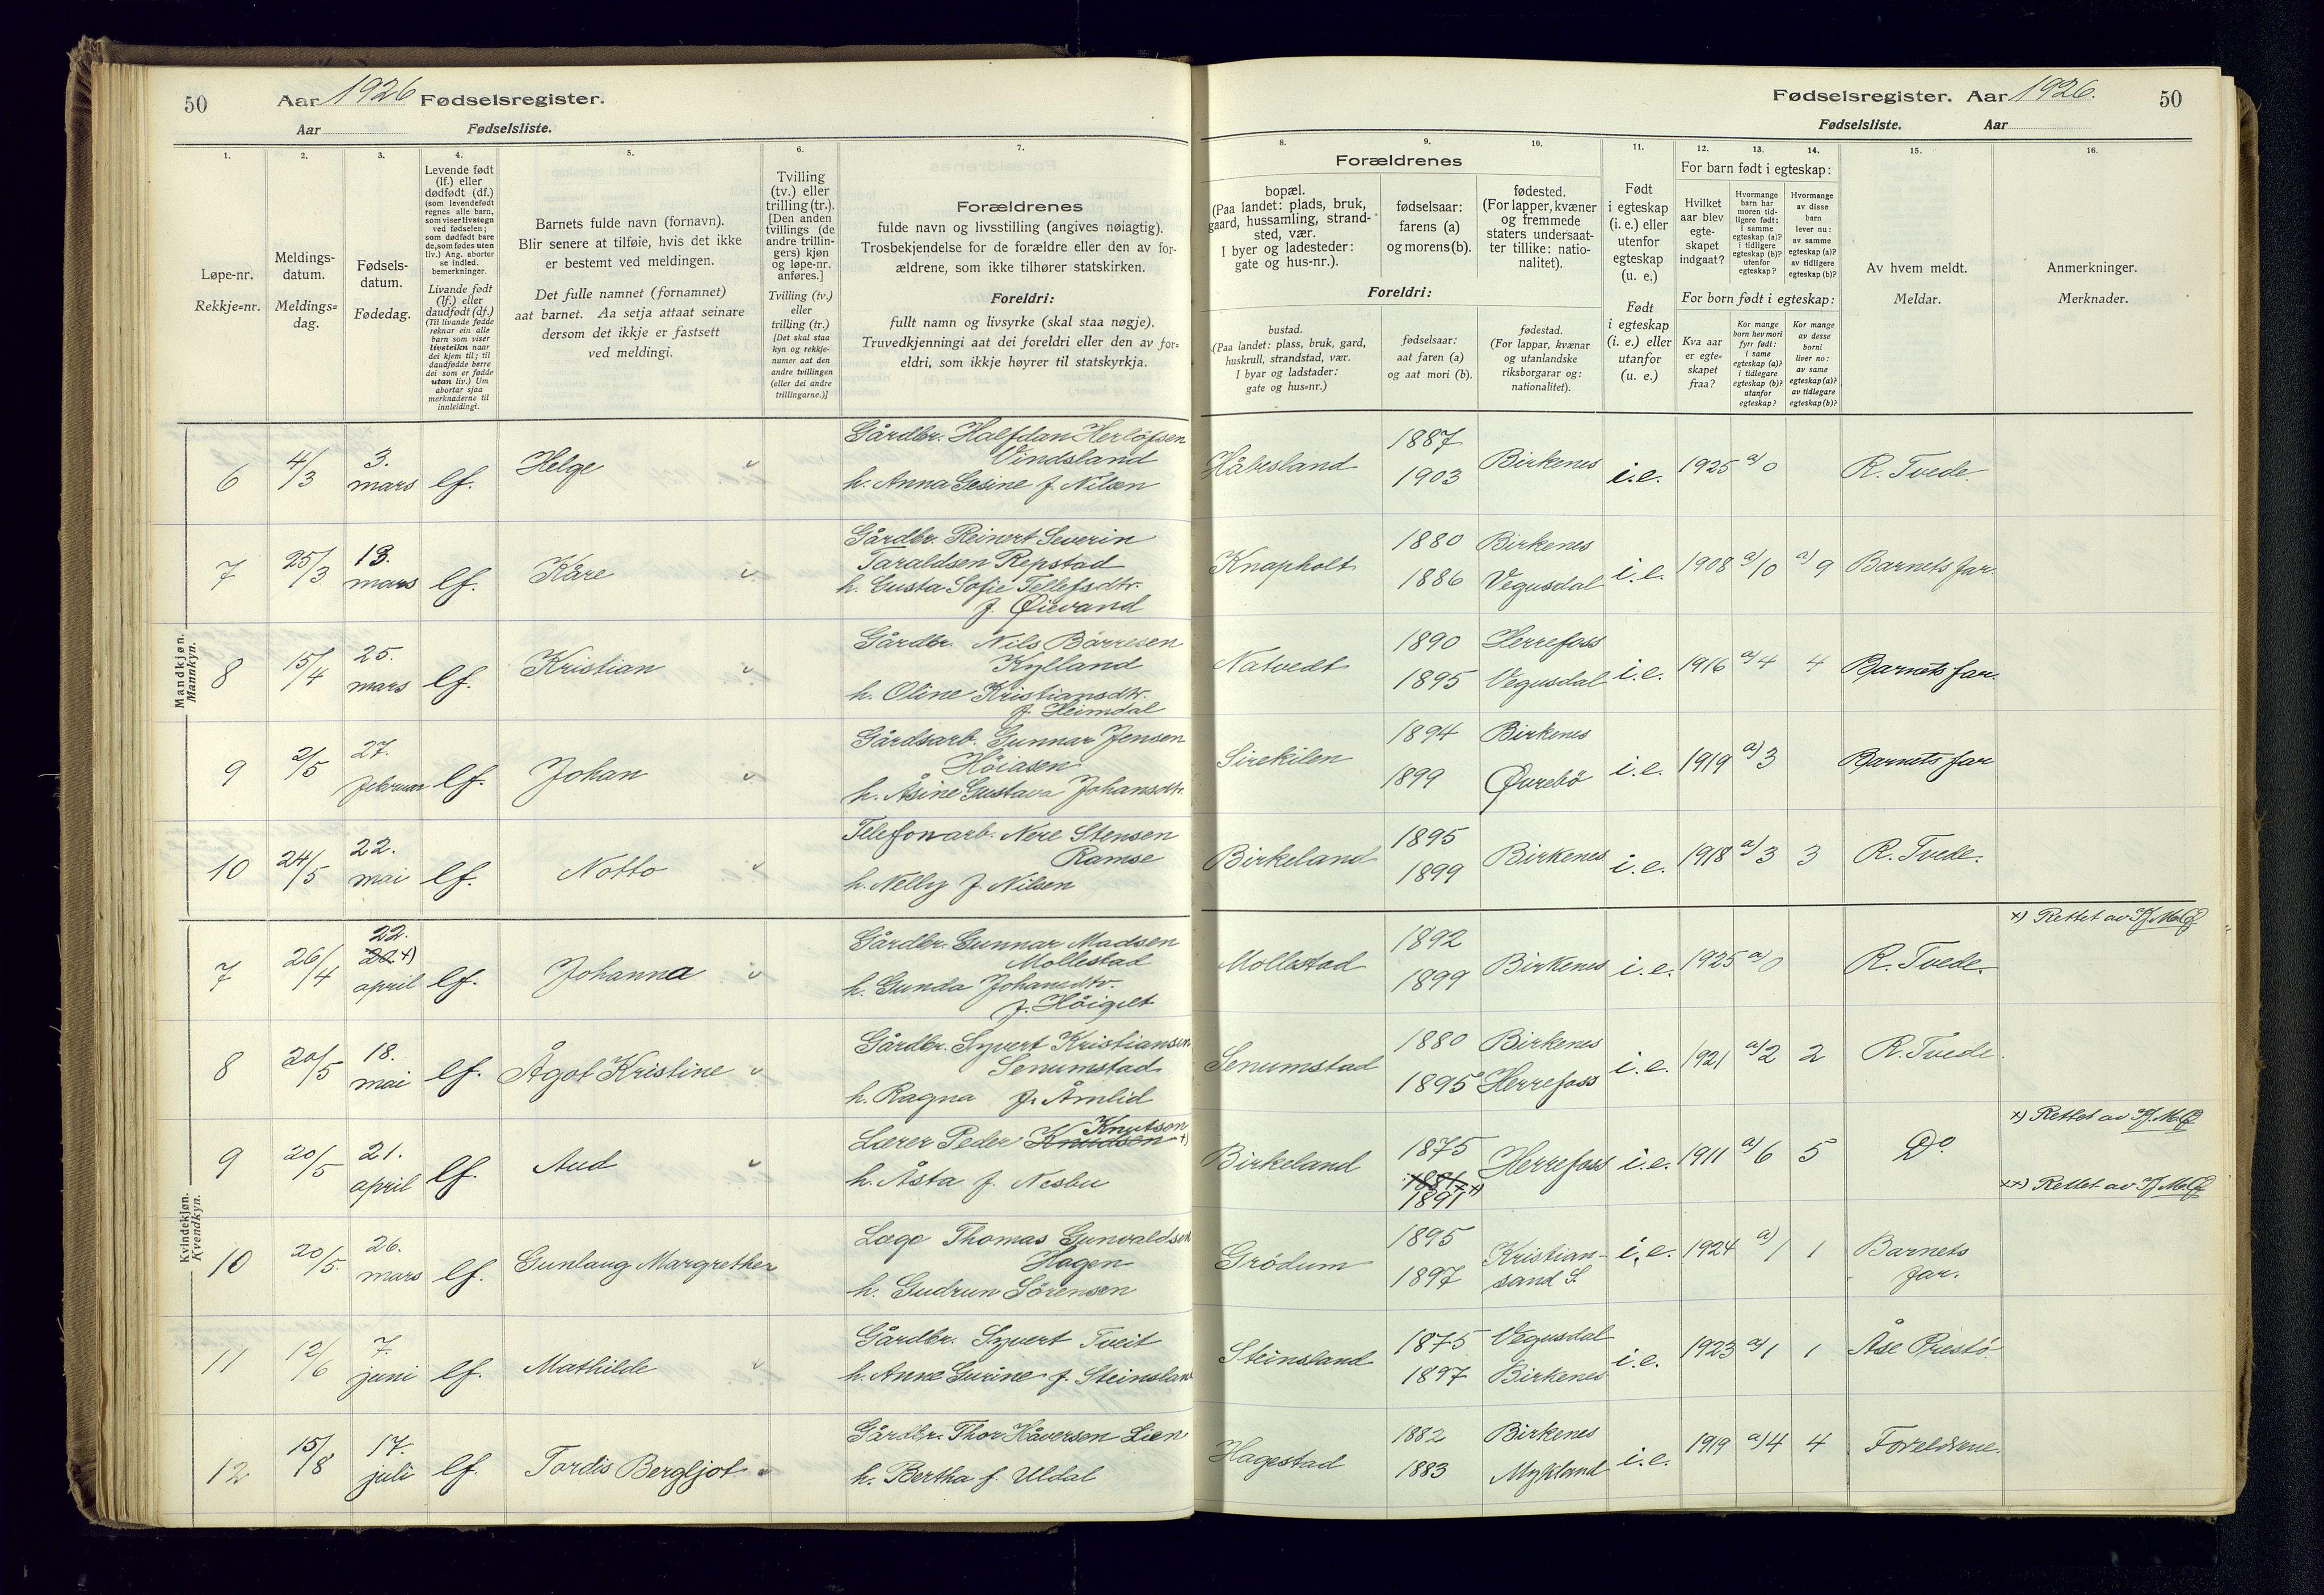 50 Aar 1926 Fødselsregister.
Aar Fødselsliste.
Fødselsregister. Aar 1926. 50
Fødselsliste. Aar
1.
Løpe-nr.
Rekkje=nr.
2.
Meldings-
datum.
Meldings=
dag.
3.
Fødsels-
datum.
Fødedag.
4.
Levende født
(lf.) eller
dødfødt (df.)
(som levendefødt
regnes alle barn,
som viser livstegn
ved fødselen;
som dødfødt bare
de, som fødes uten
liv.) Ang. aborter
se indled.
bemerkninger.
Livande født
(lf.) eller
daudfødt (df.)
(Til livande fødde
reknar ein alle
barn som viser
livsteikn naar
dei kjem til; til
daudfødde berre
dei som er fødde
utan liv.) Um
abortar sjaa
merknaderne til
innleidingi.
5.
Barnets fulde navn (fornavn).
Blir senere at tilføie, hvis det ikke
er bestemt ved meldingen.
Det fulle namnet (fornamnet)
aat barnet. Aa setja attaat seinare
dersom det ikkje er fastsett
ved meldingi.
6.
Tvilling
(tv.) eller
trilling (tr.).
[Den anden
tvillings (de
andre trillin-
gers) kjøn
og løpe-nr.
anføres.]
Tvilling (tv.)
eller
trilling (tr.)
[Det skal staa
kyn og rekkje-
numer aat den
andre tvillingen
(eller dei andre
trillingarne.)]
7.
Forældrenes
fulde navn og livsstilling (angives nøiagtig).
Trosbekjendelse for de forældre eller den av for-
ældrene, som ikke tilhører statskirken.
Foreldri:
fullt namn og livsyrke (skal staa nøgje).
Truvedkjenningi aat dei foreldri eller den av for=
eldri, som ikkje høyrer til statskyrkja.
Forældrenes
8.
bopæl.
(Paa landet: plads, bruk,
gaard, hussamling, strand-
sted, vær.
I byer og ladesteder:
gate og hus-nr.).
9.
fødselsaar:
farens (a)
og morens (b).
10.
fødested.
(For lapper, kvæner
og fremmede
staters undersaat-
ter tillike: natio-
nalitet).
Foreldri:
bustad.
(Paa landet: plass, bruk, gard,
huskrull, strandstad, vær.
I byar og ladstader:
gate og hus=nr.)
fødselsaar:
aat faren (a)
og aat mori (b).
fødestad.
(For lappar, kvænar
og utanlandske
riksborgarar og:
nationalitet).
11.
Født
i egteskap
(i. e.) eller
utenfor
egteskap
(u. e.)
Født
i egteskap
(i. e.) eller
utanfor
(u. e.)
For barn født i egteskap:
12.
Hvilket
aar blev
egte-
skapet
indgaat?
13.
Hvormange
barn har
moren tid-
ligere født:
i samme
egteskap (a)?
i tidligere
egteskap (b)?
utenfor
egteskap?
14.
Hvormange
av disse
barn
lever nu:
av samme
egteskap (a)?
av tidligere
egteskap (b)?
For born født i egteskap:
Kva aar
er egte=
skapet
fraa?
Kor mange
born hev mori
fyrr født:
i same
egteskap (a)?
i tidlegare
egteskap (b)?
utanfor
egteskap?
Kor mange
av desse
borni
liver no:
av same
egteskap (a)?
av tidlegare
egteskap (b)?
15.
Av hvem meldt.
Meldar.
16.
Anmerkninger.
Merknader.
Mandkjøn.
Mannkyn.
6 4/3 3. mars lf. Helge
Gårdbr. Halfdan Herlofsen
Vindsland
h. Anna Gesine f. Nilsen
Håbesland 1887 1903 Birkenes i.e. 1925 a) 0 R. Tvede.
7 25/3 13. mars lf. Kåre
Gårdbr. Reinert Severin
Taraldsen Repstad
h. Gusta Sofie Tellefsdtr.
f. Øievand
Knapholt 1880 Birkenes
1886 Vegusdal i.e. 1908 a) 10 a) 9 Barnets far.
8 15/4 25. mars lf. Kristian
Gårdbr. Nils Børresen
Kylland
h. Oline Kristiansdtr.
f. Heimdal
Natvedt 1890 Herrefoss
1895 Vegusdal i.e. 1916 a) 4 4 Barnets far.
9 2/5 27. februar lf. Johan
Gårdsarb. Gunnar Jensen
Høiåsen
h. Åsine Gustava Johansdtr.
Sirekilen 1894 Birkenes
1899 Øvrebö i.e. 1919 a) 3 Barnets far
10 24/5 22. mai lf. Notto
Telefonarb. Nere Stensen
Ramse
h. Nelly f. Nilsen
Birkeland 1895 1899 Birkenes i.e. 1918 a) 3 3 R. Tvede.
Kvindekjøn.
Kvendkyn.
7 26/4 22. 20. x) april lf. Johanna
Gårdbr. Gunnar Madsen
Mollestad
h. Gunda Johansdtr.
f. Höigilt
Mollestad 1892 1899 Birkenes i.e. 1925 a) 0 R. Tvede. x) Rettet av
8 20/5 18. mai lf. Ågot Kristine
Gårdbr. Syvert Kristiansen
Senumstad
h. Ragna f. Åmlid
Senumstad 1880 Birkenes
1895 Herrefoss i.e. 1921 a) 2 2 R. Tvede.
9 20/5 21. april lf. Aud
Lærer Peder Knudsen Knutson x)
h. Åsta f. Nesbu
Birkeland 1875 1891 Herrefoss i.e. 1911 a) 6 5 Do
x) Rettet av
xx) Rettet av
10 20/5. 26. mars lf. Gunlaug Margrethe
Læge Thomas Gunvaldsen
Hagen
h. Gudrun Sørensen
Grödum 1895 1897 Kristian-
sand S. i.e. 1924 a) 1 1 Barnets
far.
11 12/6 7. juni lf. Mathilde
Gårdbr. Syvert Tveit
h. Anne Gurine f. Steinsland
Steinsland 1875 Vegusdal
1897 Birkenes i.e. 1923 a) 1 1 Åse Prestö
12 15/8 17. juli lf. Tordis Bergljot
Gårdbr. Thor Håverson Lien
h. Bertha f. Uldal
Hagestad 1882 Birkenes
1883 Mykland i.e. 1919 a) 4 4 Foreldrene.